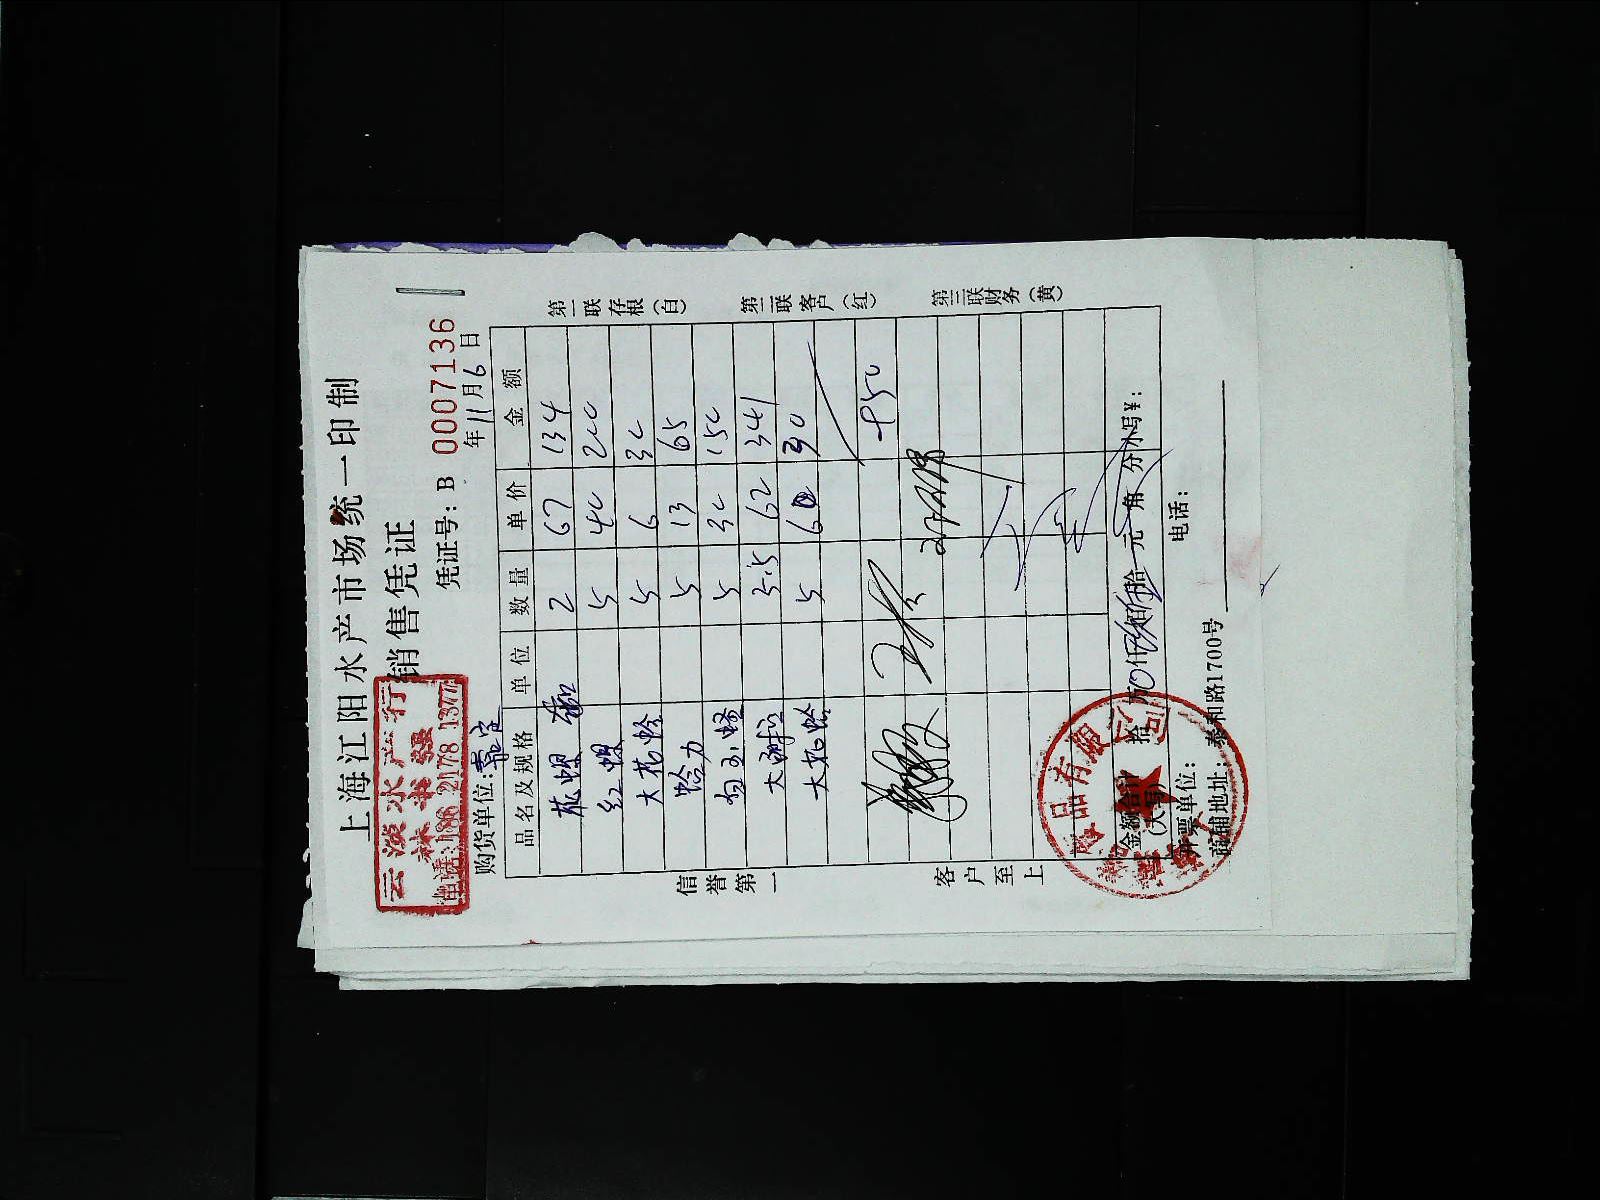 上海江阳水产市场统一印制
销售凭证
云淡水产行
林书强
电话:186 2178 1377
凭证号: B 0007136
购货单位:
年11月6日
品名及规格 单位 数量 单价 金额
2 67 134
红蚬 5 40 200
大花蛤 5 6 30
蛤力 5 13 65
白玉蛏 5 30 150
大 5.5 62 341
大 5 30
950
金额合计 拾 万 仟 佰 拾 元 角 分 小写¥:
(大写)
开票单位: 电话:
商铺地址: 泰和路1700号
信誉第一
客户至上
第一联存根(白)
第二联客户(红)
第三联财务(黄)
品有限公司